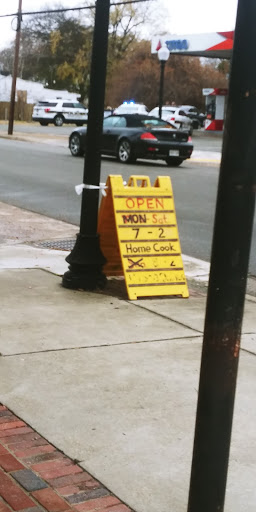 OPEN
MON - Sat
7 - 2
Home Cook